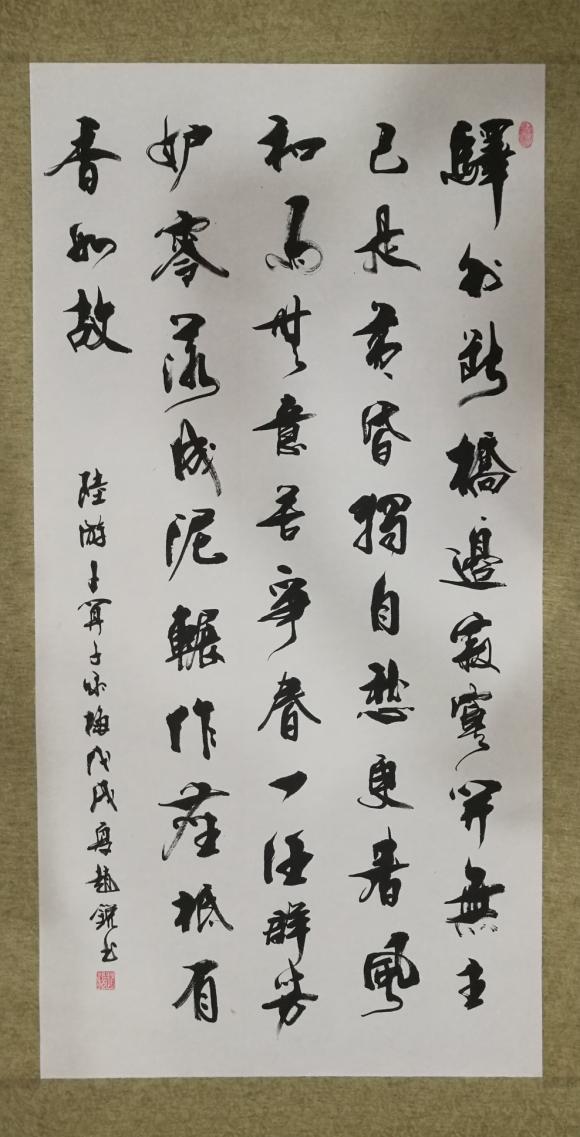 驛外斷橋邊寂寞開無主
已是黃昏獨自愁更著風
和雨無意苦爭春一任群芳
妒零落成泥輾作塵祇有
香如故
陸游卜算子咏梅戊戌夏趙銳书